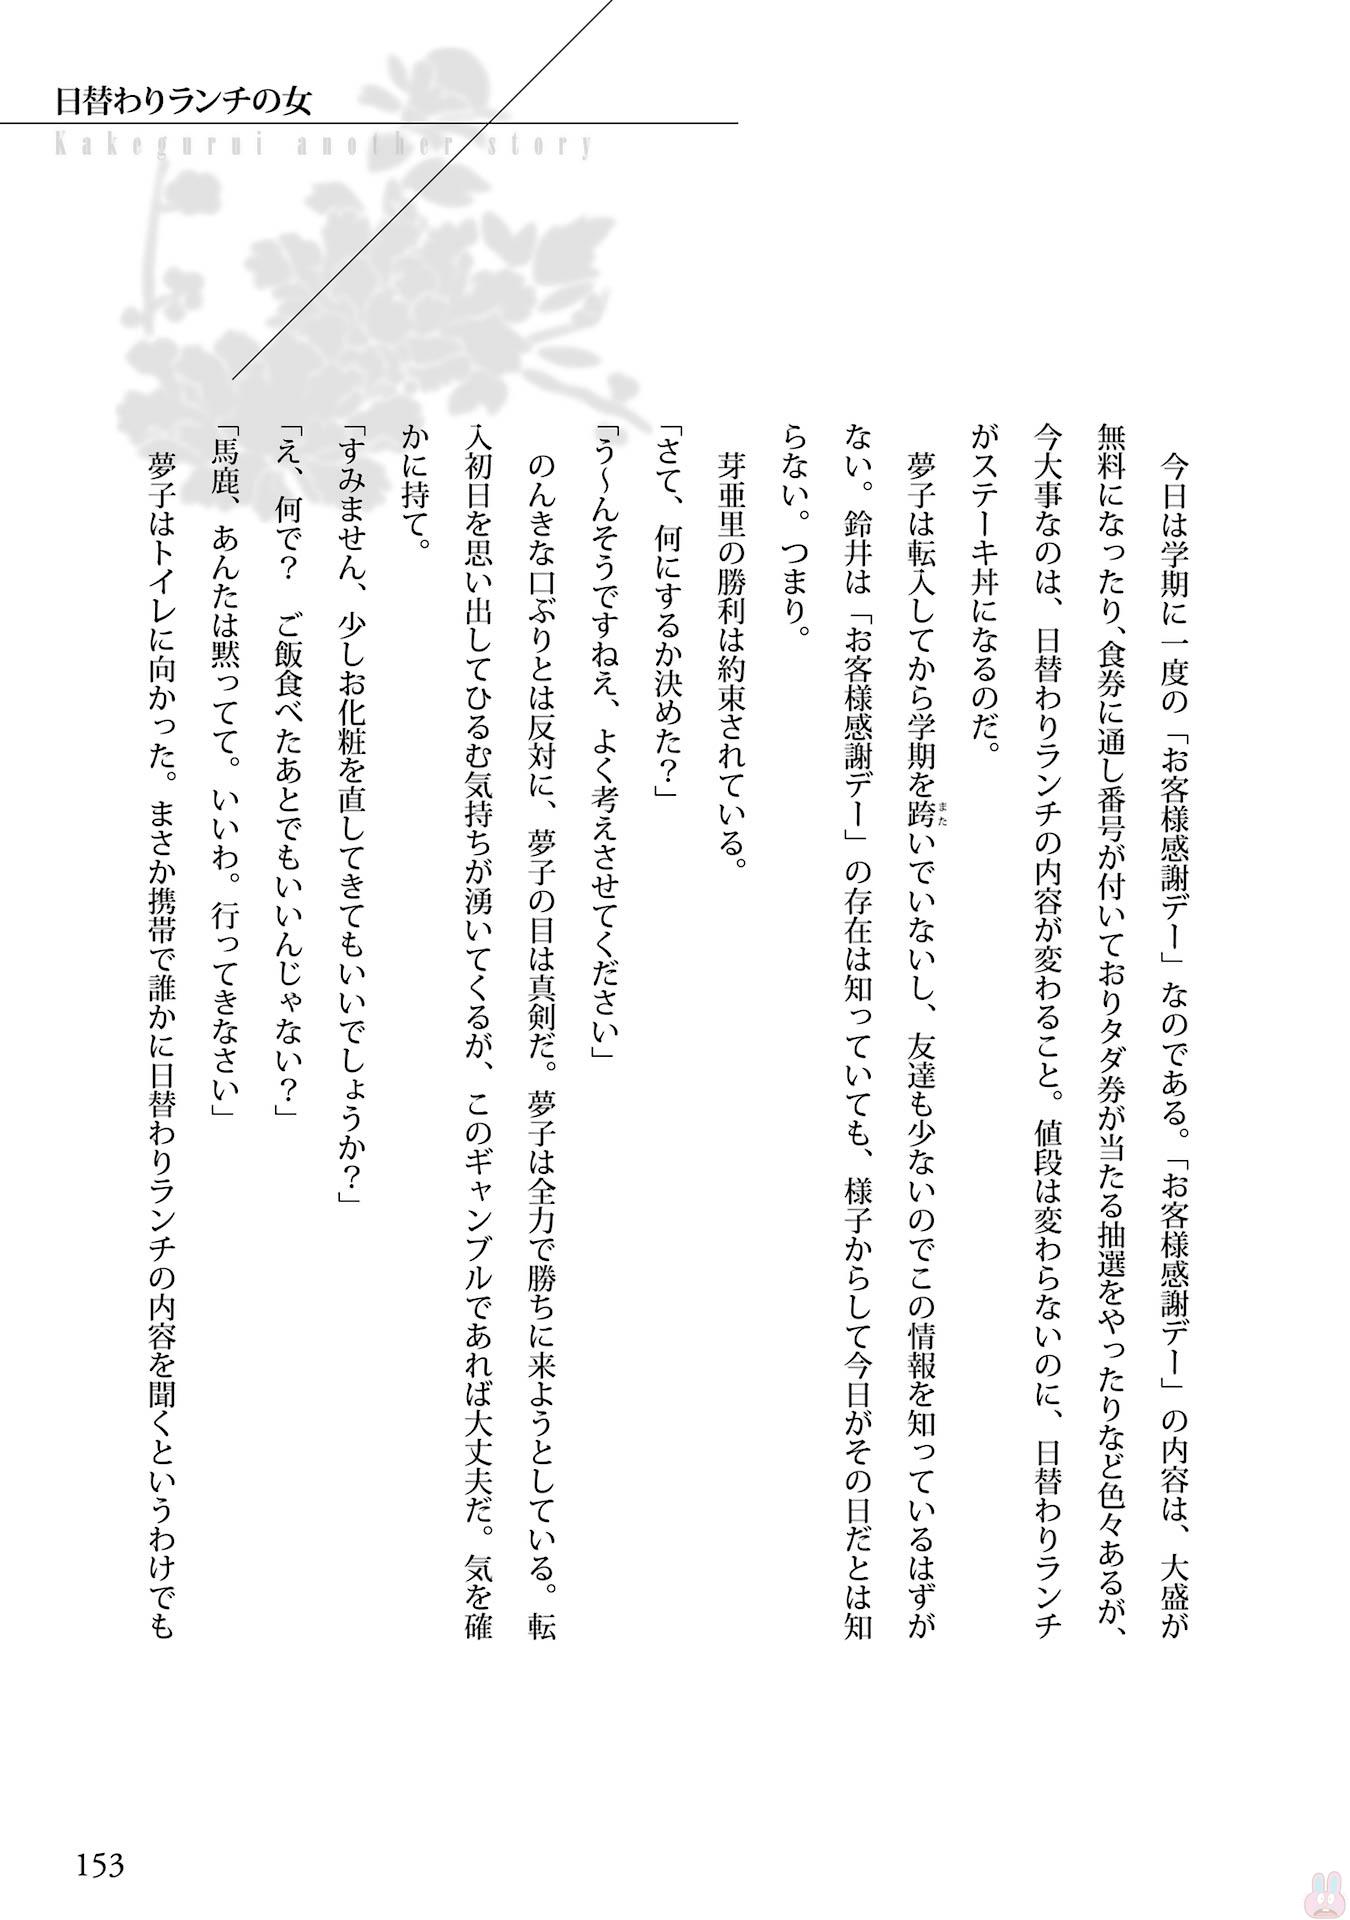 日替わりランチの女
Kakegurui another story
今日は学期に一度の「お客様感謝デー」なのである。「お客様感謝デー」の内容は、大盛が
無料になったり、食券に通し番号が付いておりタダ券が当たる抽選をやったりなど色々あるが、
今大事なのは、日替わりランチの内容が変わること。値段は変わらないのに、日替わりランチ
がステーキ丼になるのだ。
夢子は転入してから学期を跨いでいないし、友達も少ないのでこの情報を知っているはずが
また
ない。鈴井は「お客様感謝デー」の存在は知っていても、様子からして今日がその日だとは知
らない。つまり。
芽亜里の勝利は約束されている。
「さて、何にするか決めた？」
「う〜んそうですねえ、よく考えさせてください」
のんきな口ぶりとは反対に、夢子の目は真剣だ。夢子は全力で勝ちに来ようとしている。転
入初日を思い出してひるむ気持ちが湧いてくるが、このギャンブルであれば大丈夫だ。気を確
かに持て。
「すみません、少しお化粧を直してきてもいいでしょうか？」
「え、何で？　ご飯食べたあとでもいいんじゃない？」
「馬鹿、あんたは黙ってて。いいわ。行ってきなさい」
夢子はトイレに向かった。まさか携帯で誰かに日替わりランチの内容を聞くというわけでも
153